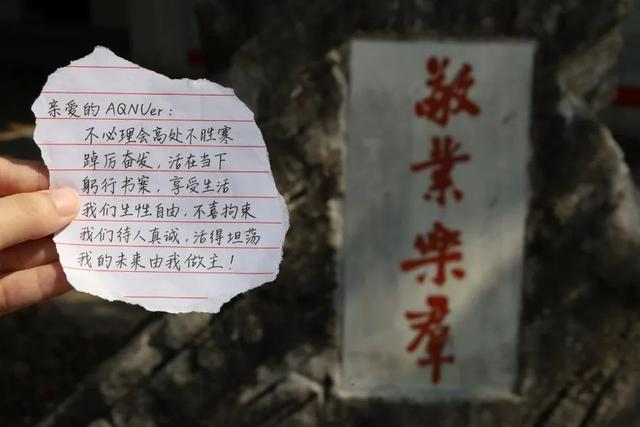 亲爱的 AQNUer：
不必理会高处不胜寒
踔厉奋发，活在当下
躬行书案，享受生活
我们生性自由，不喜拘束
我们待人真诚，活得坦荡
我的未来由我做主！
敬业乐群